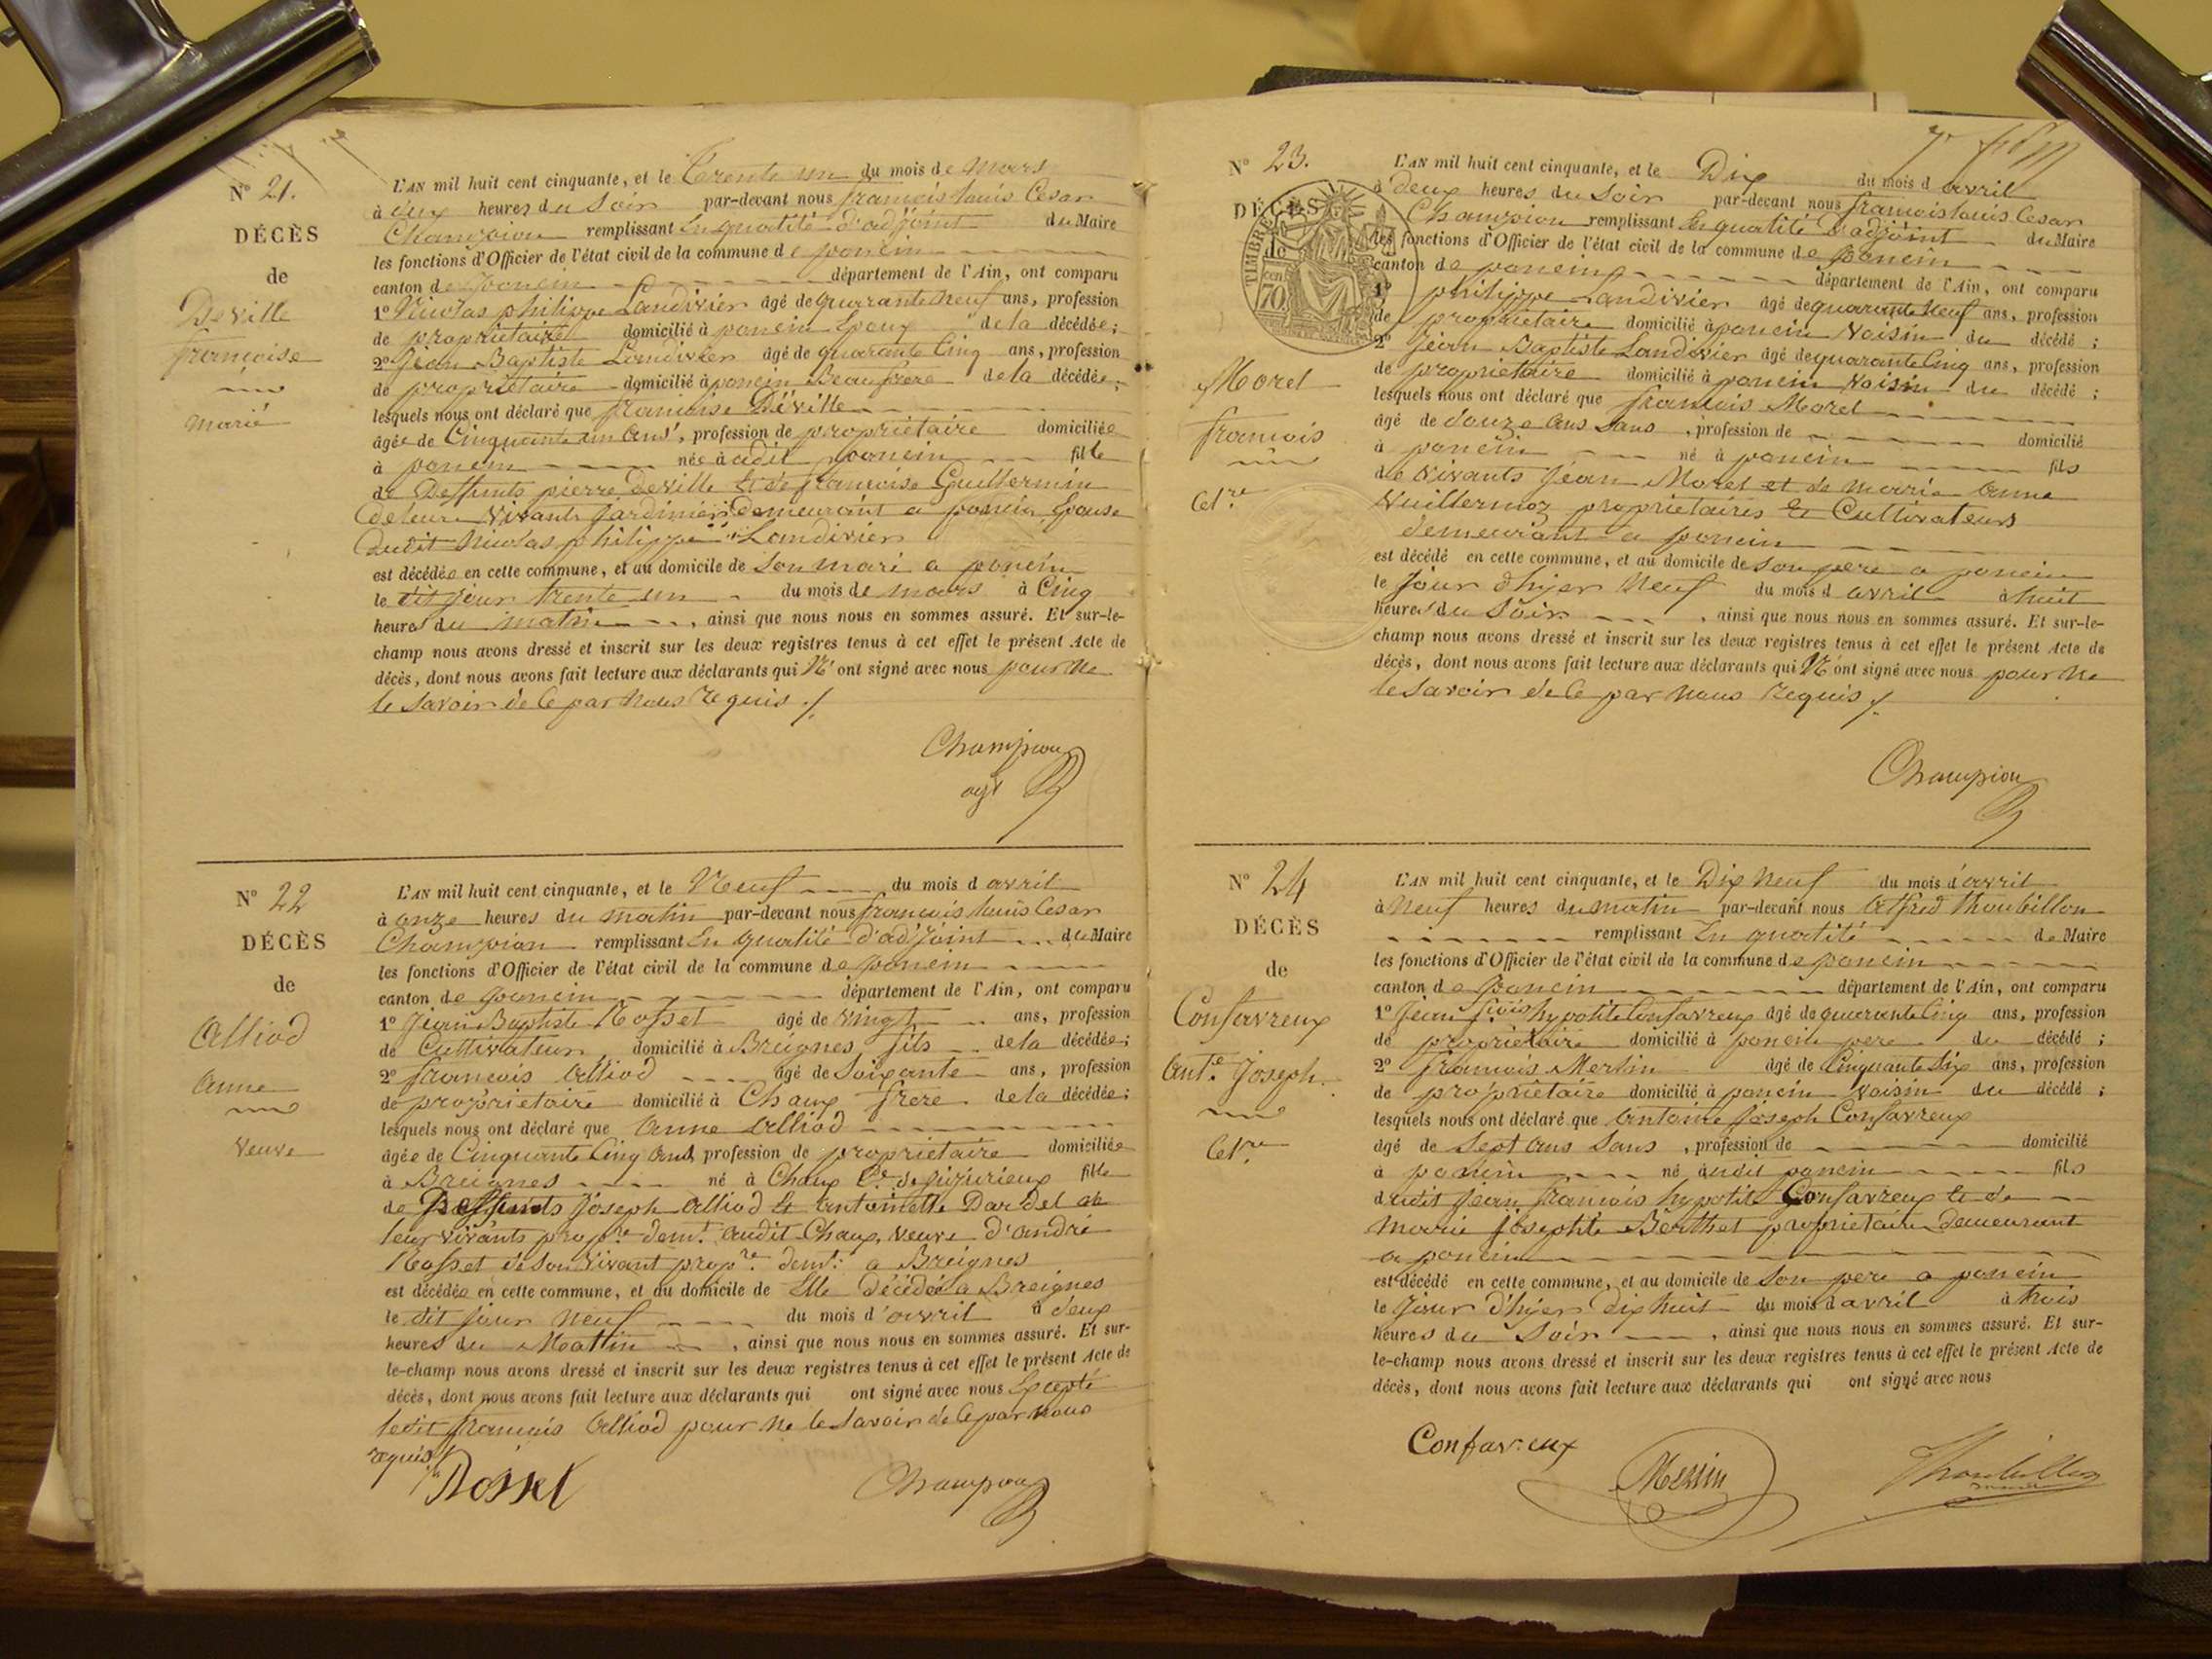 N° 21.
DÉCÈS
de
Deville
françoise
marié
L'AN mil huit cent cinquante, et le Trente un du mois de mars
à deux heures du Soir par-devant nous francois Louis Cesar
Champion remplissant En qualité d'adjoint du Maire
les fonctions d'Officier de l'état civil de la commune de poncin
canton de poncin département de l'Ain, ont comparu
1° Nicolas philippe Landivier âgé de quarante neuf ans, profession
de proprietaire domicilié à poncin Epoux de la décédée;
2° Jean Baptiste Landivier âgé de quarante Cinq ans, profession
de proprietaire domicilié à poncin Beaufrere de la décédée;
lesquels nous ont déclaré que francoise Déville
âgée de Cinquante un ans, profession de proprietaire domiciliée
à poncin née à udit poncin fille
de Deffunts pierre Deville Et de francoise Guillermin
de leurs Vivants jardiniers demeurant a poncin, Epouse
dudit Nicolas philippe Landivier
est décédée en cette commune, et au domicile de Son mari a poncin
le dit jour trente un du mois de mars à Cinq
heures du matin, ainsi que nous nous en sommes assuré. Et sur-le-
champ nous avons dressé et inscrit sur les deux registres tenus à cet effet le présent Acte de
décès, dont nous avons fait lecture aux déclarants qui N' ont signé avec nous pour ne
le Savoir de Ce par Nous Requis ./.
Champion
adjt
N° 22
DÉCÈS
de
Alliod
Anne
Veuve
L'AN mil huit cent cinquante, et le Neuf du mois d avril
à onze heures du matin par-devant nous francois Louis Cesar
Champion remplissant En qualité d'adjoint du Maire
les fonctions d'Officier de l'état civil de la commune de poncin
canton de poncin département de l'Ain, ont comparu
1° Jean Baptiste Rosset âgé de vingt ans, profession
de Cultivateur domicilié à Breignes fils de la décédée;
2° francois Alliod âgé de Soixante ans, profession
de proprietaire domicilié à Chaux frere de la décédée;
lesquels nous ont déclaré que Anne Alliod
âgée de Cinquante Cinq ans, profession de proprietaire domiciliée
à Breignes né à Chaux Cne de jujurieux fille
de Deffunts Joseph Alliod Et Antoinette Dardel de
leur vivants propre demt audit Chaux, veuve d'andré
Rosset de Son Vivant propre demt a Breignes
est décédée en cette commune, et du domicile de Elle décédée a Breignes
le dit jour neuf du mois d'avril à deux
heures du Mattin, ainsi que nous nous en sommes assuré. Et sur-
le-champ nous avons dressé et inscrit sur les deux registres tenus à cet effet le présent Acte de
décès, dont nous avons fait lecture aux déclarants qui ont signé avec nous Excepté
ledit francois Alliod pour ne le Savoir de Ce par Nous
requis
Rosset
Champion
N° 23.
DÉCÈS
de
TIMBRE
cent 70
Morel
francois
Celre
L'AN mil huit cent cinquante, et le Dix du mois d avril
à deux heures du Soir par-devant nous francois Louis Cesar
Champion remplissant En qualité d'adjoint du Maire
les fonctions d'Officier de l'état civil de la commune de poncin
canton de poncin département de l'Ain, ont comparu
1° philippe Landivier âgé de quarante neuf ans, profession
de proprietaire domicilié à poncin Voisin du décédé;
2° Jean Baptiste Landivier âgé de quarante Cinq ans, profession
de proprietaire domicilié à poncin Voisin du décédé;
lesquels nous ont déclaré que francois Morel
âgé de douze ans Sans, profession de domicilié
à poncin né à poncin fils
de vivants Jean Morel et de marie anne
Vuillermoz proprietaires Et Cultivateurs
demeurant a poncin
est décédé en cette commune, et au domicile de Son pere a poncin
le Jour d'hier Neuf du mois d avril à huit
heures du Soir, ainsi que nous nous en sommes assuré. Et sur-le-
champ nous avons dressé et inscrit sur les deux registres tenus à cet effet le présent Acte de
décès, dont nous avons fait lecture aux déclarants qui N' ont signé avec nous pour ne
le Savoir de Ce par Nous Requis ./.
Champion
N° 24
DÉCÈS
de
Confavreux
Ante Joseph.
Celre
L'AN mil huit cent cinquante, et le Dix Neuf du mois d'avril
à Neuf heures du matin par-devant nous Alfred Thoubillon
remplissant En qualité de Maire
les fonctions d'Officier de l'état civil de la commune de poncin
canton de poncin département de l'Ain, ont comparu
1° Jean fcois hypolite Confavreux âgé de quarante Cinq ans, profession
de proprietaire domicilié à poncin pere du décédé;
2° francois Merlin âgé de Cinquante Six ans, profession
de proprietaire domicilié à poncin Voisin du décédé;
lesquels nous ont déclaré que Antoine Joseph Confavreux
âgé de Sept ans Sans, profession de domicilié
à poncin né audit poncin fils
dudit Jean francois hypolite Confavreux Et de
Marie Josephte Berthet proprietaire demeurant
a poncin
est décédé en cette commune, et au domicile de Son pere a poncin
le Jour d'hier dix huit du mois d avril à trois
heures du Soir, ainsi que nous nous en sommes assuré. Et sur-
le-champ nous avons dressé et inscrit sur les deux registres tenus à cet effet le présent Acte de
décès, dont nous avons fait lecture aux déclarants qui ont signé avec nous
Confavreux
Merlin
Thoubillon